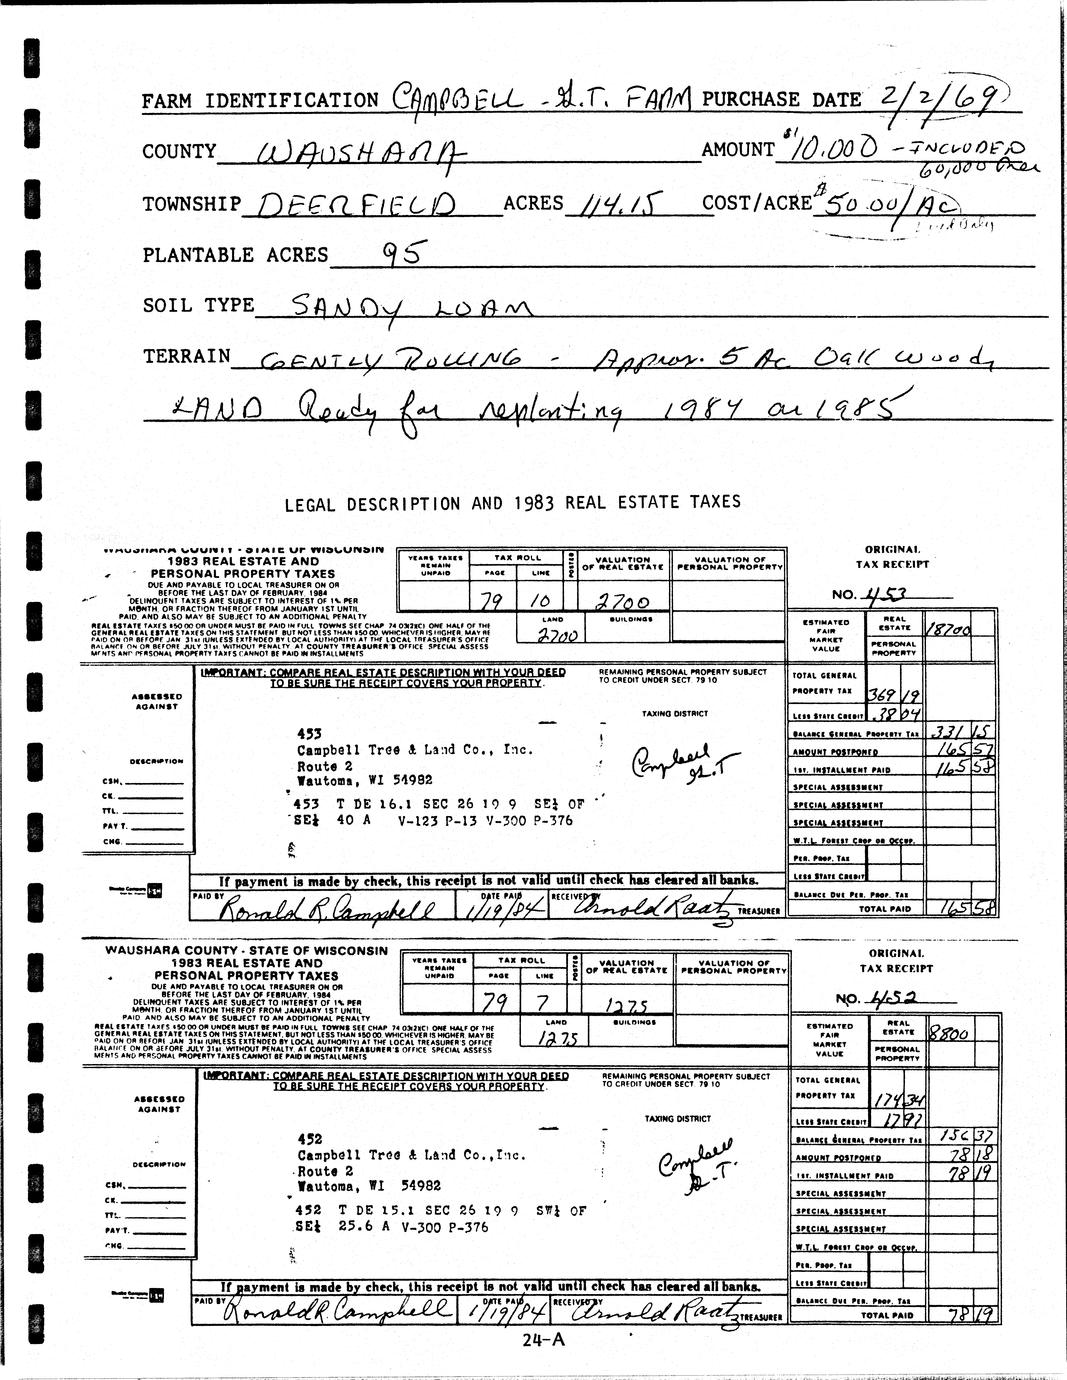 FARM IDENTIFICATION CAMPBELL - G.T. FARM PURCHASE DATE 2/2/69
COUNTY WAUSHARA AMOUNT $10,000 - INCLUDED
60,000
TOWNSHIP DEERFIELD ACRES 114.15 COST/ACRE $50.00/AC
Land Only
PLANTABLE ACRES 95
SOIL TYPE SANDY LOAM
TERRAIN GENTLY ROLLING - Approx. 5 Ac Oak Woods
LAND Ready for replanting 1984 or 1985
LEGAL DESCRIPTION AND 1983 REAL ESTATE TAXES
WAUSHARA COUNTY - STATE OF WISCONSIN
1983 REAL ESTATE AND
PERSONAL PROPERTY TAXES
DUE AND PAYABLE TO LOCAL TREASURER ON OR
BEFORE THE LAST DAY OF FEBRUARY, 1984
DELINQUENT TAXES ARE SUBJECT TO INTEREST OF 1% PER
MONTH, OR FRACTION THEREOF FROM JANUARY 1ST UNTIL
PAID, AND ALSO MAY BE SUBJECT TO AN ADDITIONAL PENALTY
REAL ESTATE TAXES $50.00 OR UNDER MUST BE PAID IN FULL TOWNS SEE CHAP 74 03(2)(C) ONE HALF OF THE
GENERAL REAL ESTATE TAXES ON THIS STATEMENT BUT NOT LESS THAN $50.00, WHICHEVER IS HIGHER, MAY BE
PAID ON OR BEFORE JAN 31st (UNLESS EXTENDED BY LOCAL AUTHORITY) AT THE LOCAL TREASURER'S OFFICE
BALANCE ON OR BEFORE JULY 31st, WITHOUT PENALTY, AT COUNTY TREASURER'S OFFICE SPECIAL ASSESS
MENTS AND PERSONAL PROPERTY TAXES CANNOT BE PAID IN INSTALLMENTS
YEARS TAXES REMAIN UNPAID
TAX ROLL
PAGE LINE POSTED
79 10
VALUATION OF REAL ESTATE
2700
LAND BUILDINGS
2700
VALUATION OF PERSONAL PROPERTY
ORIGINAL
TAX RECEIPT
NO. 453
ESTIMATED FAIR MARKET VALUE
REAL ESTATE 18700
PERSONAL PROPERTY
IMPORTANT: COMPARE REAL ESTATE DESCRIPTION WITH YOUR DEED
TO BE SURE THE RECEIPT COVERS YOUR PROPERTY.
REMAINING PERSONAL PROPERTY SUBJECT
TO CREDIT UNDER SECT. 79 10
TAXING DISTRICT
ASSESSED
AGAINST
453
Campbell Tree & Land Co., Inc.
Route 2
Wautoma, WI 54982
Campbell
G.T
DESCRIPTION
453 T DE 16.1 SEC 26 19 9 SE¼ OF
SE¼ 40 A V-123 P-13 V-300 P-376
CSH.
CK.
TTL.
PAY'T.
CHG.
TOTAL GENERAL
PROPERTY TAX 369 19
LESS STATE CREDIT 38 04
BALANCE GENERAL PROPERTY TAX 331 15
AMOUNT POSTPONED 165 57
1ST. INSTALLMENT PAID 165 58
SPECIAL ASSESSMENT
SPECIAL ASSESSMENT
SPECIAL ASSESSMENT
W.T.L. FOREST CROP OR OCCUP.
PER. PROP. TAX
LESS STATE CREDIT
BALANCE DUE PER. PROP. TAX
TOTAL PAID 165 58
If payment is made by check, this receipt is not valid until check has cleared all banks.
PAID BY Ronald R. Campbell DATE PAID 1/19/84 RECEIVED BY Arnold Raatz TREASURER
WAUSHARA COUNTY - STATE OF WISCONSIN
1983 REAL ESTATE AND
PERSONAL PROPERTY TAXES
DUE AND PAYABLE TO LOCAL TREASURER ON OR
BEFORE THE LAST DAY OF FEBRUARY, 1984
DELINQUENT TAXES ARE SUBJECT TO INTEREST OF 1% PER
MONTH, OR FRACTION THEREOF FROM JANUARY 1ST UNTIL
PAID, AND ALSO MAY BE SUBJECT TO AN ADDITIONAL PENALTY
REAL ESTATE TAXES $50.00 OR UNDER MUST BE PAID IN FULL TOWNS SEE CHAP 74 03(2)(C) ONE HALF OF THE
GENERAL REAL ESTATE TAXES ON THIS STATEMENT, BUT NOT LESS THAN $50.00, WHICHEVER IS HIGHER MAY BE
PAID ON OR BEFORE JAN 31st (UNLESS EXTENDED BY LOCAL AUTHORITY) AT THE LOCAL TREASURER'S OFFICE
BALANCE ON OR BEFORE JULY 31st, WITHOUT PENALTY, AT COUNTY TREASURER'S OFFICE SPECIAL ASSESS
MENTS AND PERSONAL PROPERTY TAXES CANNOT BE PAID IN INSTALLMENTS
YEARS TAXES REMAIN UNPAID
TAX ROLL
PAGE LINE POSTED
79 7
VALUATION OF REAL ESTATE
1275
LAND BUILDINGS
1275
VALUATION OF PERSONAL PROPERTY
ORIGINAL
TAX RECEIPT
NO. 452
ESTIMATED FAIR MARKET VALUE
REAL ESTATE 8800
PERSONAL PROPERTY
IMPORTANT: COMPARE REAL ESTATE DESCRIPTION WITH YOUR DEED
TO BE SURE THE RECEIPT COVERS YOUR PROPERTY.
REMAINING PERSONAL PROPERTY SUBJECT
TO CREDIT UNDER SECT. 79 10
TAXING DISTRICT
ASSESSED
AGAINST
452
Campbell Tree & Land Co.,Inc.
Route 2
Wautoma, WI 54982
Campbell
G.T.
DESCRIPTION
452 T DE 15.1 SEC 26 19 9 SW¼ OF
SE¼ 25.6 A V-300 P-376
CSH.
CK.
TTL.
PAY'T.
CHG.
TOTAL GENERAL
PROPERTY TAX 174 34
LESS STATE CREDIT 17 97
BALANCE GENERAL PROPERTY TAX 156 37
AMOUNT POSTPONED 78 18
1ST. INSTALLMENT PAID 78 19
SPECIAL ASSESSMENT
SPECIAL ASSESSMENT
SPECIAL ASSESSMENT
W.T.L. FOREST CROP OR OCCUP.
PER. PROP. TAX
LESS STATE CREDIT
BALANCE DUE PER. PROP. TAX
TOTAL PAID 78 19
If payment is made by check, this receipt is not valid until check has cleared all banks.
PAID BY Ronald R. Campbell DATE PAID 1/19/84 RECEIVED BY Arnold Raatz TREASURER
24-A